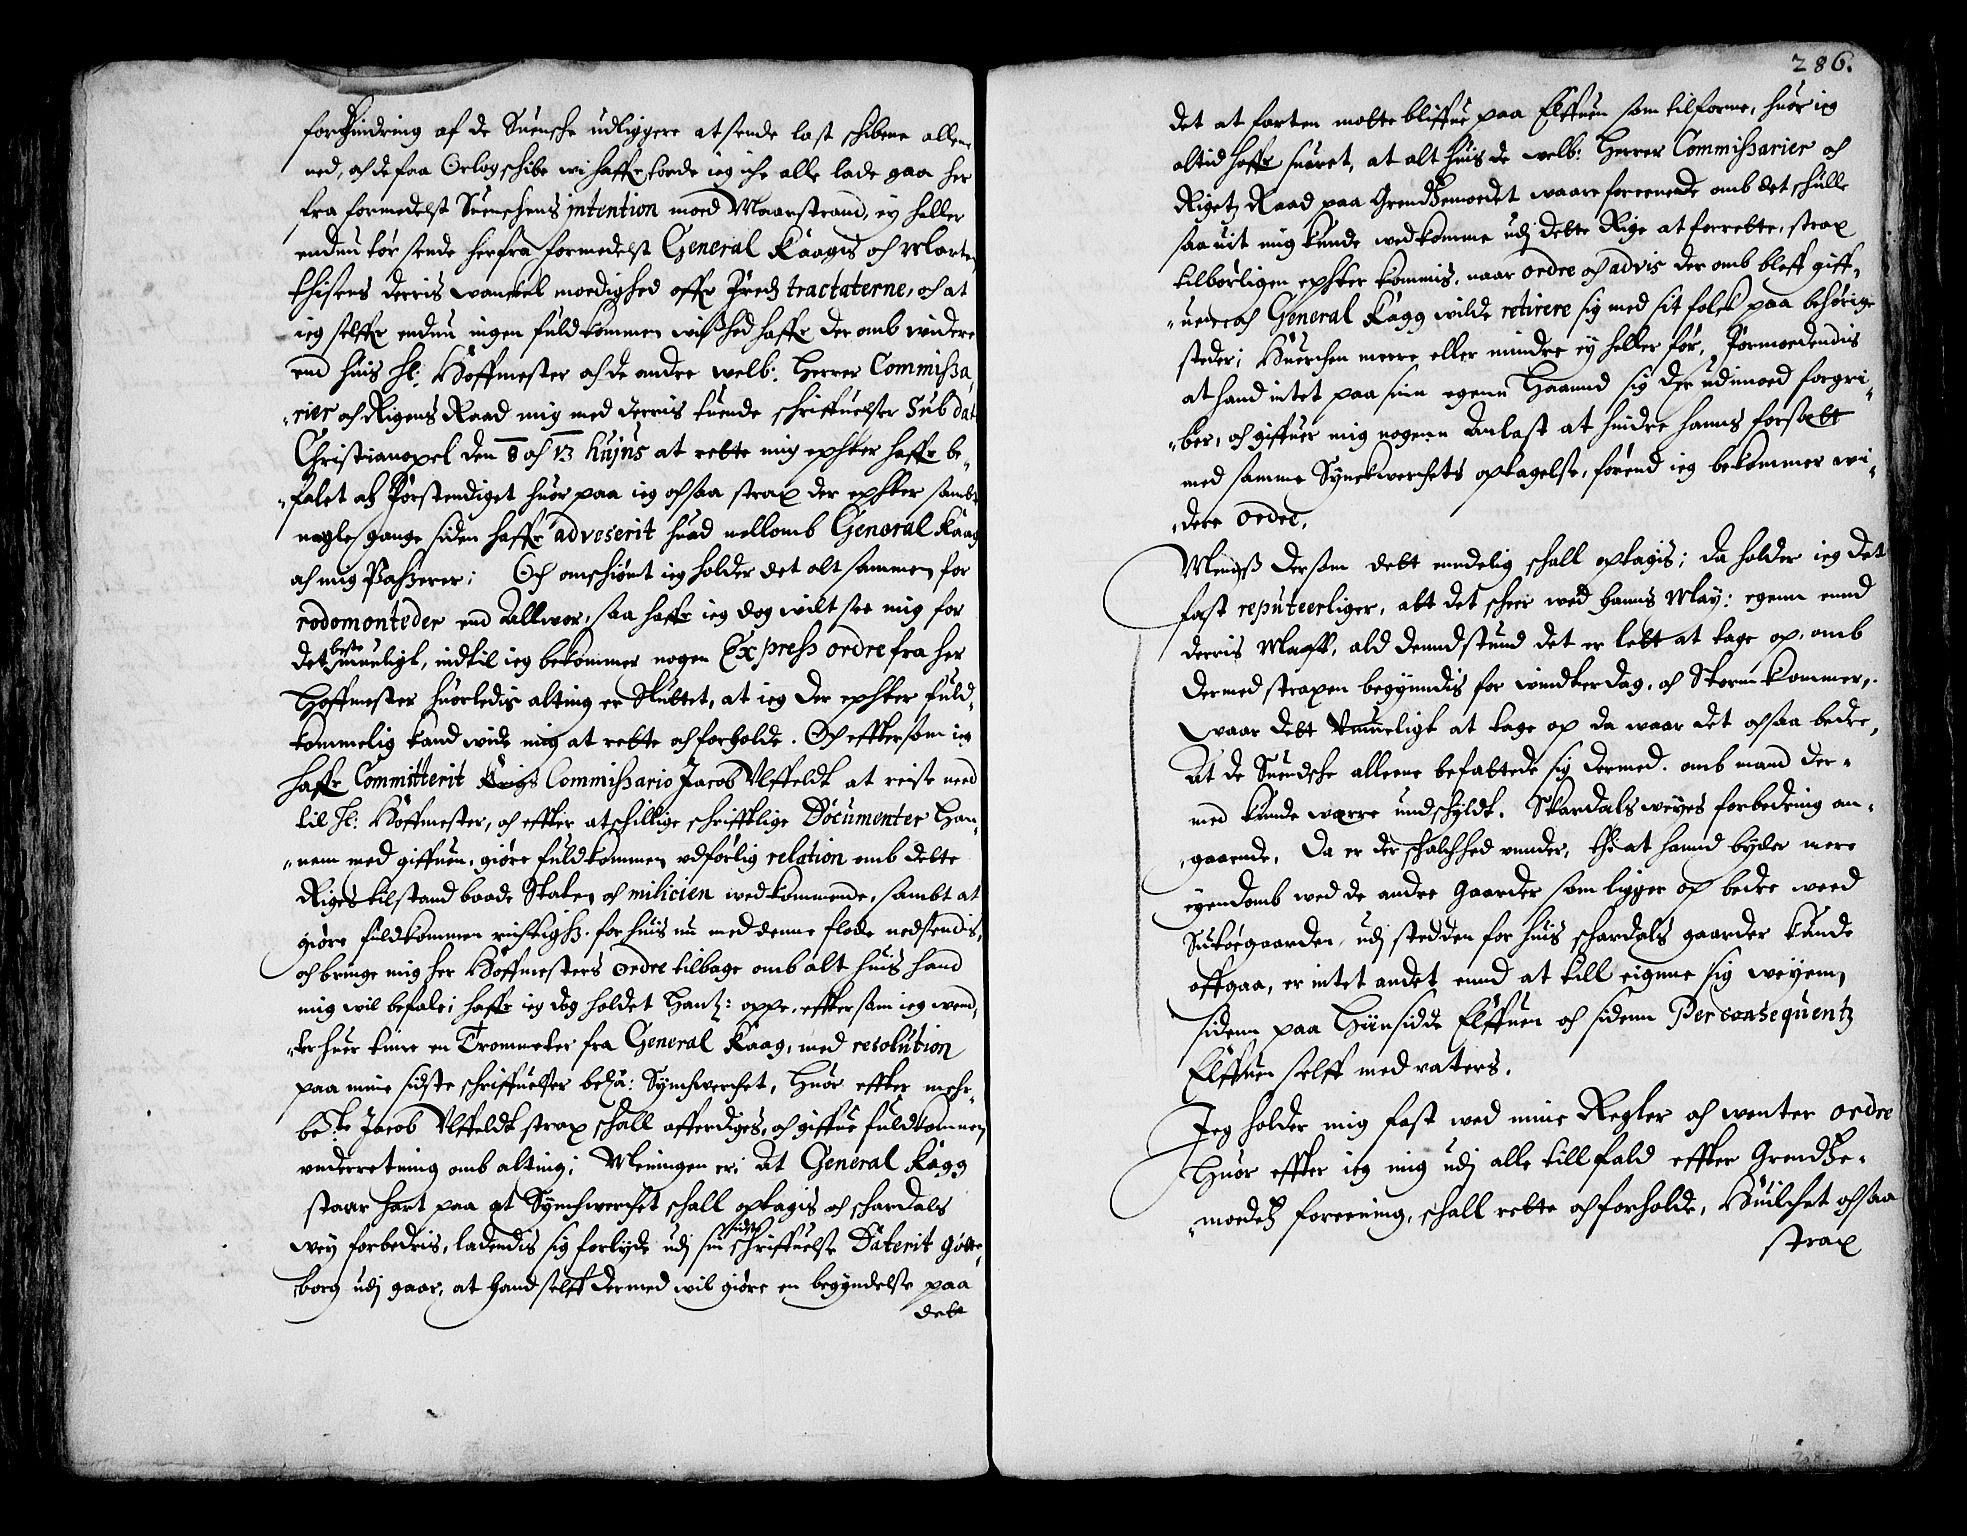 forhindring af de Suensche udliggere at sende last schibene allene
ned, och de faa Orlog schibe wi haffr, torde ieg iche alle lade gaa her
fra formedelst Suenschens intention moed Maarstrand, ey heller
endnu tør sende herfra formedelst General Kaagis och Marten
thisens derris wanckel moedighed offr Freds tractaterne, och at
ieg selffr endnu ingen fuldkommen wished haffr der omb widere
end huis Hl: Hoffmester och de andre welb: Herrer Commissa,
rier och Rigens Raad mig med derris tuende schriffuelser Sub dat
Christianopel den 8 och 13 hujus at rette mig epfter haffr be,
falet och Forstendiget huor paa ieg ochsaa strax der epfter sambt
nogle gange siden haffr adveserit huad mellomb General Kaag
och mig Passerer; Och omschiønt ieg holder det alt sammen for
rodomonteder end Allwor, saa haffr ieg dog wilt see mig for
det beste muuligt, indtil ieg bekommer nogen Express ordre fra her
Hoffmester huorledis alting er Sluttet, at ieg der epfter fuld,
kommelig kand wide mig at rette och forholde. Och effter som ieg
haffr Committerit Krigs Commissario Jacob Ulffeldt at reise need
til Hl: Hoffmester, och effter atschillige schrifftlige Documenter Han,
nem med giffuen, giøre fuldkommen udførlig relation omb dette
Riges tilstand baade Staten och milicien wedkommende, sambt at
giøre fuldkommen richtighed for huis nu med denne flode nedsendis,
och bringe mig her Hoffmesters ordre tilbage omb alt huis hand
mig wil befale; haffr ieg dog holdet Hantz: oppe, effter som ieg wend,
ter huer time en Trommeter fra General Kaag, med resolution
paa mine sidste schriffuelser beha: Synchwerchet, Huor effter mehr,
be:te Jacob Ulffeldt strax schall afferdiges, och giffue fuldkommen
underretning omb alting; Meningen er; At General Kagg
staar hart paa at Synchwerchet schall optagis och schardals
wey forbedris, ladendis sig forlyde udi sin sidste schriffuelse Daterit Gøtte,
borg udi gaar, at hand selff dermed wil giøre en begyndelse paa
dett
286.
det at farten motte bliffue paa Elffuen som tilforne, huor ieg
altid haffr suaret, at alt huis de welb: Herrer Commissarier och
Rigets Raad paa Grendsemoedet waare foreenede omb det schulle
saauit mig kunde wedkomme udi dette Rige at forrette, strax
tilbørligen epfter kommis, naar ordre och advis der omb bleff giff,
uen och General Kagg wilde retirere sig med sit folck paa behørige
steder; Huerchen meere eller mindre ey heller før, Formoedendis
at hand intet paa sinn egenn Haannd sig der udimoed forgri,
ber, och giffuer mig nogenn Anlast at hindre hanns forsætt
med samme Synckwerchets optagelse, førend ieg bekommer wi,
dere ordre.
Mens dersom dett enndelig schall optagis; da holder ieg det
fast reputeerliger, att det scheer wed hanns May: egenn ennd
derris Magst, ald denndstund det er lett at tage op, omb
dermed straxen begynndis for windter dag, och Storm kommer,
waar dett Umueligt at tage op da waar det ochsaa bedre,
At de Suendsche alleene befattede sig dermed. omb mand der,
med kunde wærre undschyldt. Skardals weyes forbedring an,
gaaende, Da er der schalchhed unnder, thi at hannd byder mere
eyendomb wed de andre Gaarder som ligger op bedre weed
Sutøegaarden, udi stedden for huis schardals gaarder kunde
affgaa, er intet andet ennd at till eignne sig weyenn,
sidenn paa Hiinsidde Elffuen och sidenn Per consequents
Elffuen selff med vaters.
Jeg holder mig fast wed mine Regler och wenter ordre
Huor effter ieg mig udi alle tillfald effter Grendse,
moedes foreening, schall rette och forholde, Huilchet ochsaa
strax